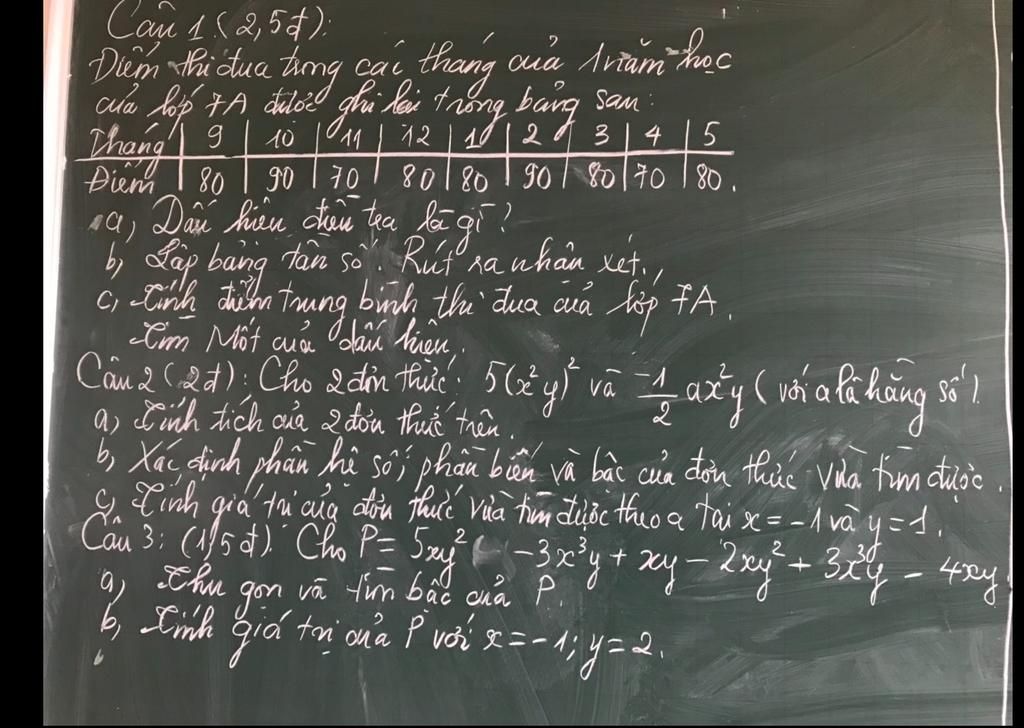 Câu 1 (2,5đ):
Điểm thi đua trong các tháng của 1 năm học
của lớp 7A được ghi lại trong bảng sau:
Tháng | 9 | 10 | 11 | 12 | 1 | 2 | 3 | 4 | 5
Điểm | 80 | 90 | 70 | 80 | 80 | 90 | 80 | 70 | 80.
a, Dấu hiệu điều tra là gì?
b, Lập bảng tần số. Rút ra nhận xét.
c, Tính điểm trung bình thi đua của lớp 7A.
Tìm Mốt của dấu hiệu.
Câu 2 (2đ): Cho 2 đơn thức: 5(x²y)² và -1/2 ax²y (với a là hằng số).
a) Tính tích của 2 đơn thức trên.
b, Xác định phần hệ số, phần biến và bậc của đơn thức vừa tìm được.
c, Tính giá trị của đơn thức vừa tìm được theo a tại x = -1 và y = 1.
Câu 3: (1,5đ) Cho P = 5xy² - 3x³y + xy - 2xy² + 3x³y - 4xy
a) Thu gọn và tìm bậc của P.
b, Tính giá trị của P với x = -1; y = 2.